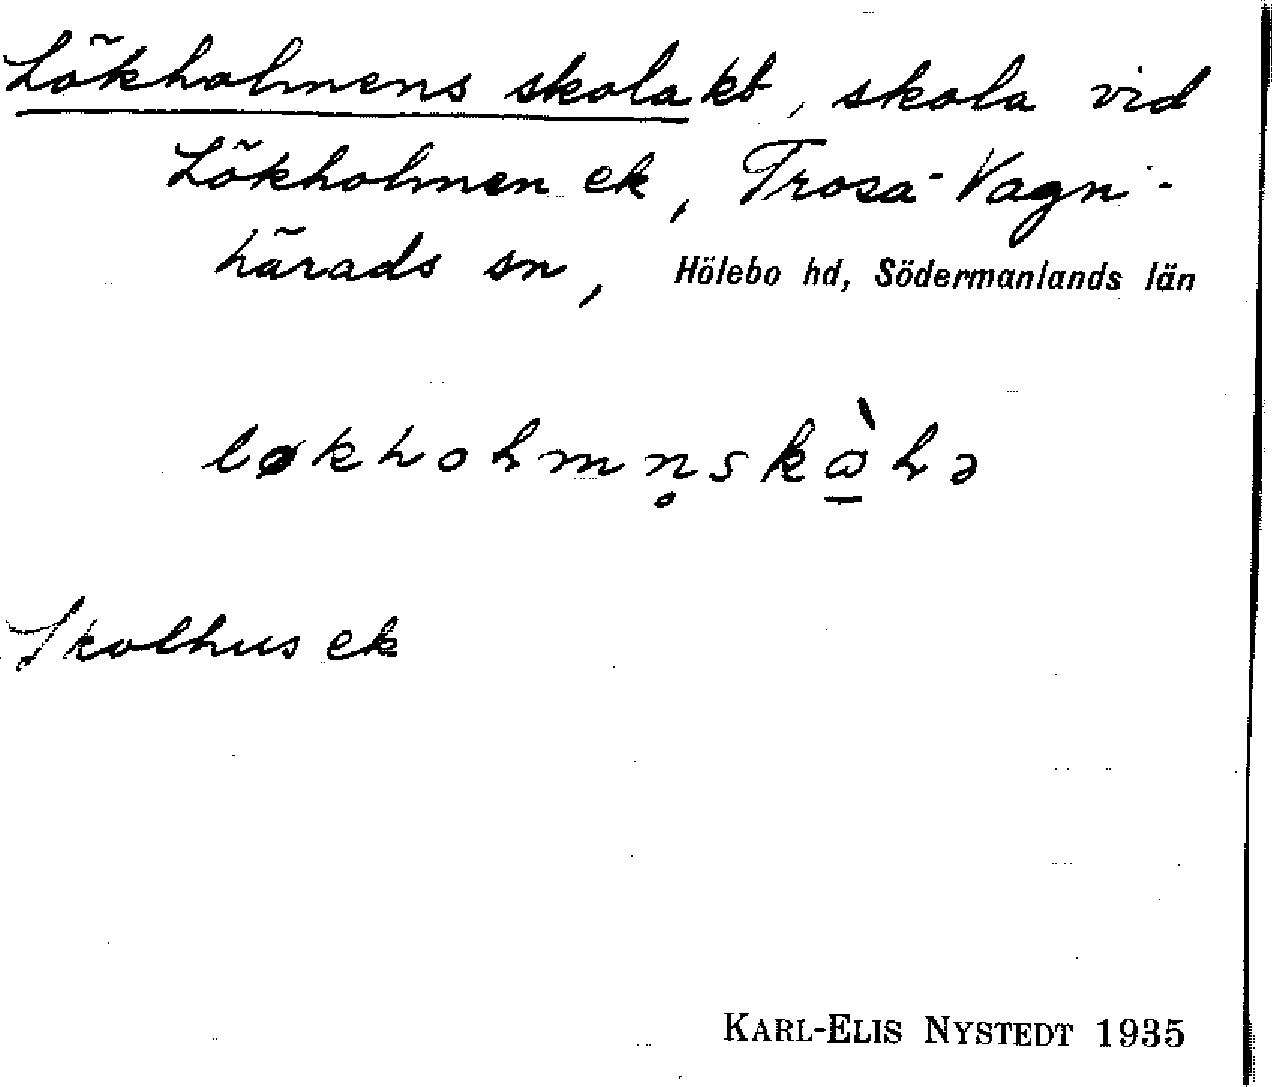 Lökholmens skola kt, skola vid
Lökholmen ek, Trosa-Vagn-
härads sn, Hölebo hd, Södermanlands län
Skolhus ek
KARL-ELIS NYSTEDT 1935